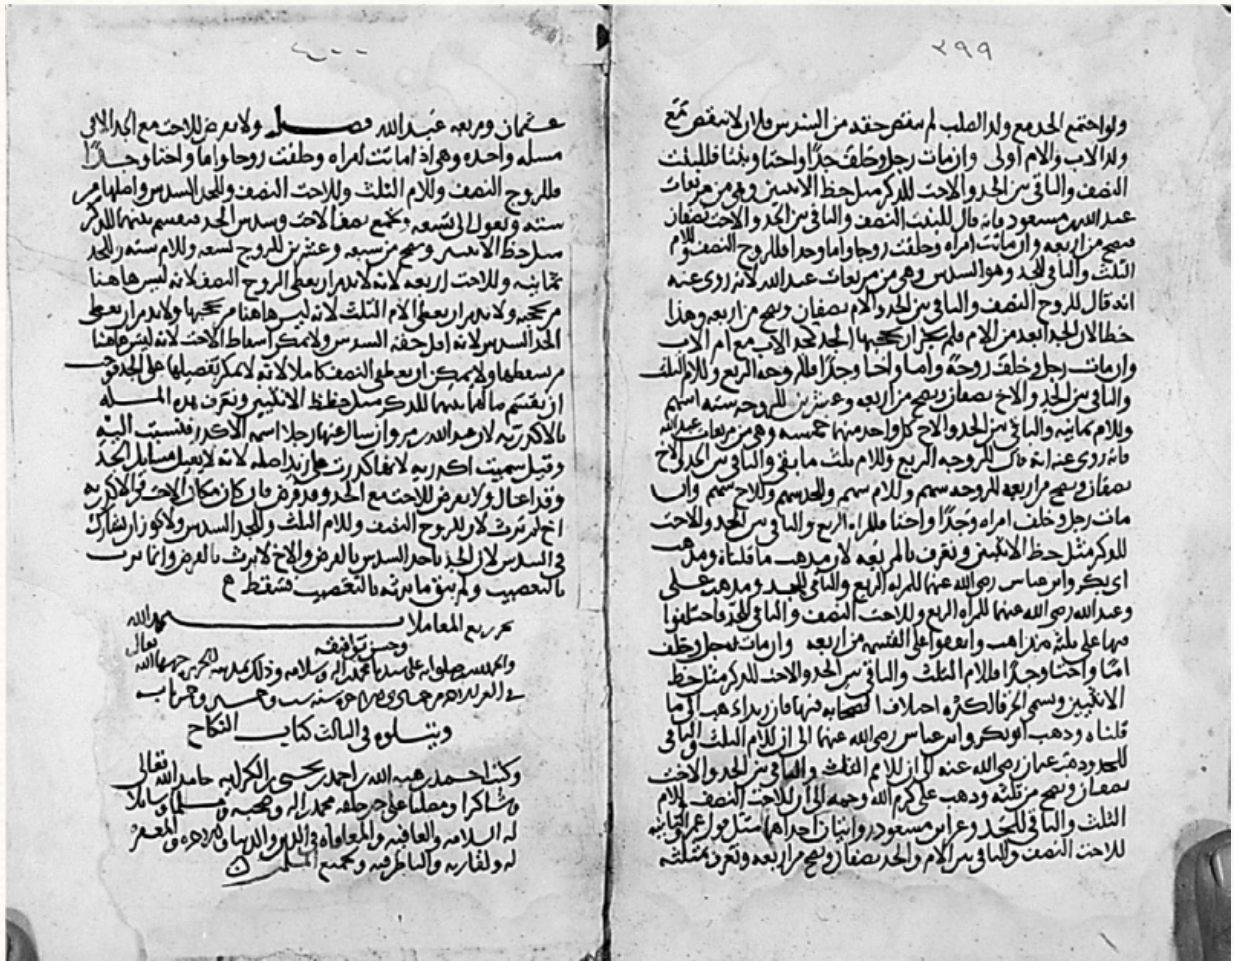 ٣٩٩
ولو اجتمع الجد مع ولد الصلب لم ينقص حقه من السدس فلان لا ينقص مع
ولد الاب والام أولى وان مات رجل وخلف جدًا واختا وبنتا فللبنت
النصف والباقي بين الجد والاخت للذكر مثل حظ الانثيين وهي من مربعات
عبد الله بن مسعود فانه قال للبنت النصف والباقي بين الجد والاخت نصفان
وتصح من اربعه وان ماتت امراه وخلفت زوجا واما وجدا فللزوج النصف وللام
الثلث والباقي للجد وهو السدس وهي من مربعات عبد الله لانه روى عنه
انه قال للزوج النصف والباقي بين الجد والام نصفان وتصح من اربعه وهذا
خطا لان الجد ابعد من الام فلم يجز ان يحجبها الجد كجد الاب مع ام الاب
وان مات رجل وخلف زوجة واما واخا وجدًا فللزوجه الربع وللام الثلث
والباقي بين الجد والاخ نصفان وتصح من اربعه وعشرين للزوجه سته اسهم
وللام ثمانيه والباقي بين الجد والاخ لكل واحد منهما خمسه وهي من مربعات عبد الله
فانه روى عنه انه قال للزوجه الربع وللام ثلث ما بقي والباقي بين الجد والاخ
نصفان وتصح من اربعه للزوجه سهم وللام سهم وللجد سهم وللاخ سهم وان
مات رجل وخلف امراه وجدًا واختا فللمراه الربع والباقي بين الجد والاخت
للذكر مثل حظ الانثيين وتعرف بالمربعه لان مذهب ما قلناه ومذهب
ابي بكر وابن عباس رضي الله عنهما للمراه الربع والباقي للجد ومذهب علي
وعبد الله رضي الله عنهما للمراه الربع وللاخت النصف والباقي للجد فاختلفوا
فيها على ثلثه مذاهب واتفقوا على القسمه من اربعه وان مات رجل وخلف
امًا واختا وجدًا فللام الثلث والباقي بين الجد والاخت للذكر مثل حظ
الانثيين وتسمى الخرقا لكثره اختلاف الصحابه فيها فان زيدا ذهب الى ما
قلناه وذهب ابو بكر وابن عباس رضي الله عنهما الى ان للام الثلث والباقي
للجد وذهب عثمان رضي الله عنه الى ان للام الثلث والباقي بين الجد والاخت
نصفان وتصح من ثلثه وذهب علي كرم الله وجهه الى ان للاخت النصف وللام
الثلث والباقي للجد وعن ابن مسعود روايتان احداهما مثل قول عمر والثانيه
للاخت النصف والباقي بين الام والجد نصفان وتصح من اربعه وتعرف بمثلثه
٤٠٠
عثمان ومربعه عبد الله فصل ولا يفرض للاخت مع الجد الا في
مسله واحده وهي اذا ماتت امراه وخلفت زوجا واما واختا وجدًا
فللزوج النصف وللام الثلث وللاخت النصف وللجد السدس واصلها من
سته وتعول الى تسعه ويجمع نصف الاخت وسدس الجد فيقسم بينهما للذكر
مثل حظ الانثيين وتصح من سبعه وعشرين للزوج تسعه وللام سته وللجد
ثمانيه وللاخت اربعه لانه لا بد ان يعطى الزوج النصف لانه ليس هاهنا
من يحجبه ولا بد من ان يعطى الام الثلث لانه ليس هاهنا من يحجبها ولا بد من ان يعطى
الجد السدس لانه اقل حقه السدس ولا يمكن اسقاط الاخت لانه ليس هاهنا
من يسقطها ولا يمكن ان يعطى النصف كاملا لانه لا يمكن تفضيلها على الجد فوجب
ان يقسم مالهما بينهما للذكر مثل حظ الانثيين وتعرف هذه المسله
بالاكدريه لان عبد الملك بن مروان سال عنها رجلا اسمه الاكدر فنسبت اليه
وقيل سميت اكدريه لانها كدرت على زيد اصله لانه لا يعيل مسايل الجد
وقد اعال ولا يفرض للاخت مع الجد وقد فرض فان كان مكان الاخت في الاكدريه
اخ لم يرث لان للزوج النصف وللام الثلث وللجد السدس ولا يجوز ان يشارك
في السدس لان الجد ياخذ السدس بالفرض والاخ لا يرث بالفرض وانما يرث
بالتعصيب ولم يبق ما يرثه بالتعصيب فسقط
ربع المعاملات بحمد الله
وحسن توفيقه
ويتلوه في الثالث كتاب النكاح
وكتب احمد بن هبه الله بن احمد بن يحيى حامدا لله تعالى
وشاكرا ومصليا على خير خلقه محمد واله وصحبه ومسلما وسايلا
له السلامه والعافيه والمعافاه في الدين والدنيا والاخره والمغفره
له ولقاريه والناظر فيه ولجميع المسلمين